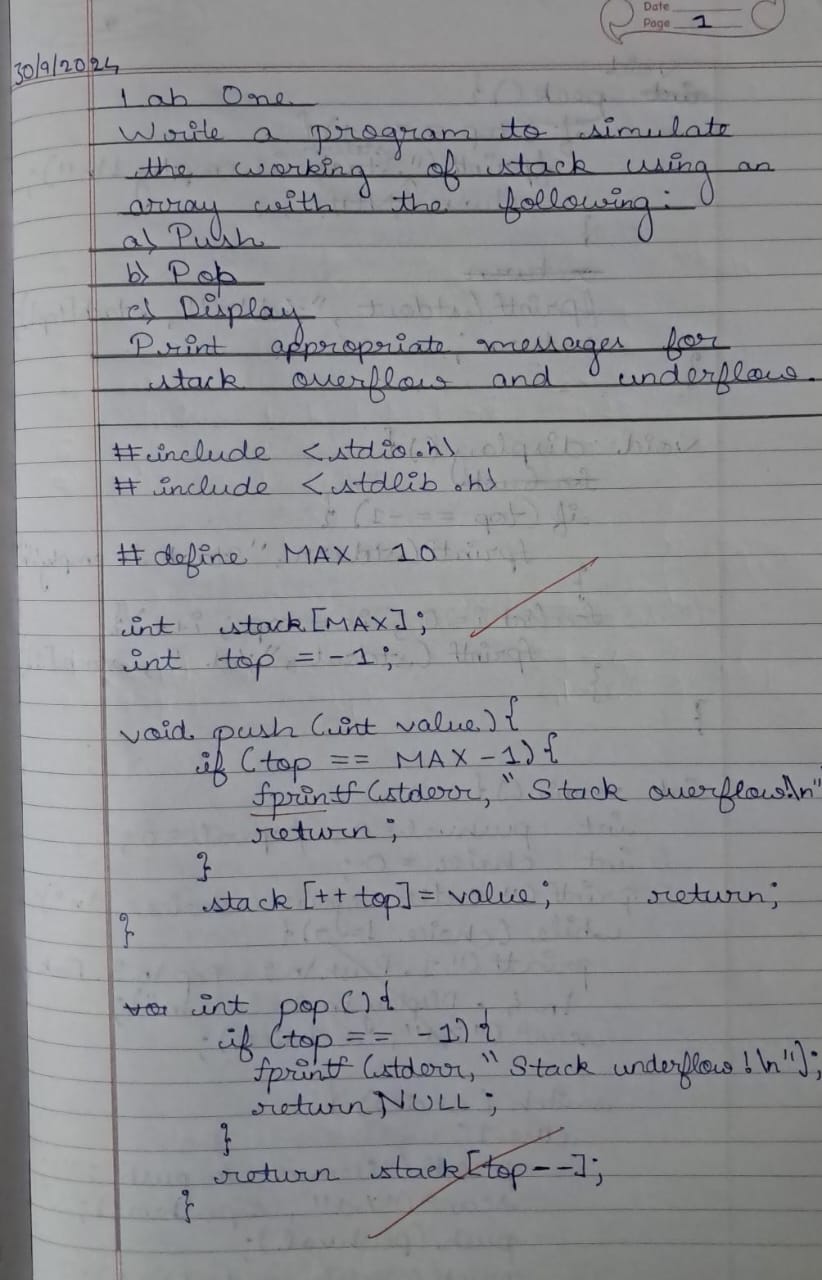 Date
Page 1
30/9/2024
Lab One
Write a program to simulate
the working of stack using an
array with the following:
a) Push
b) Pop
c) Display
Print appropriate messages for
stack overflow and underflow.
#include <stdio.h>
# include <stdlib.h>
# define MAX 10
int stack[MAX];
int top = -1;
void push (int value) {
if (top == MAX -1) {
fprintf (stderr, "Stack overflow!\n"
return;
}
stack [++top] = value; return;
}
int pop () {
if (top == -1) {
fprintf (stderr, "Stack underflow!\n");
return NULL;
}
return stack[top--];
}